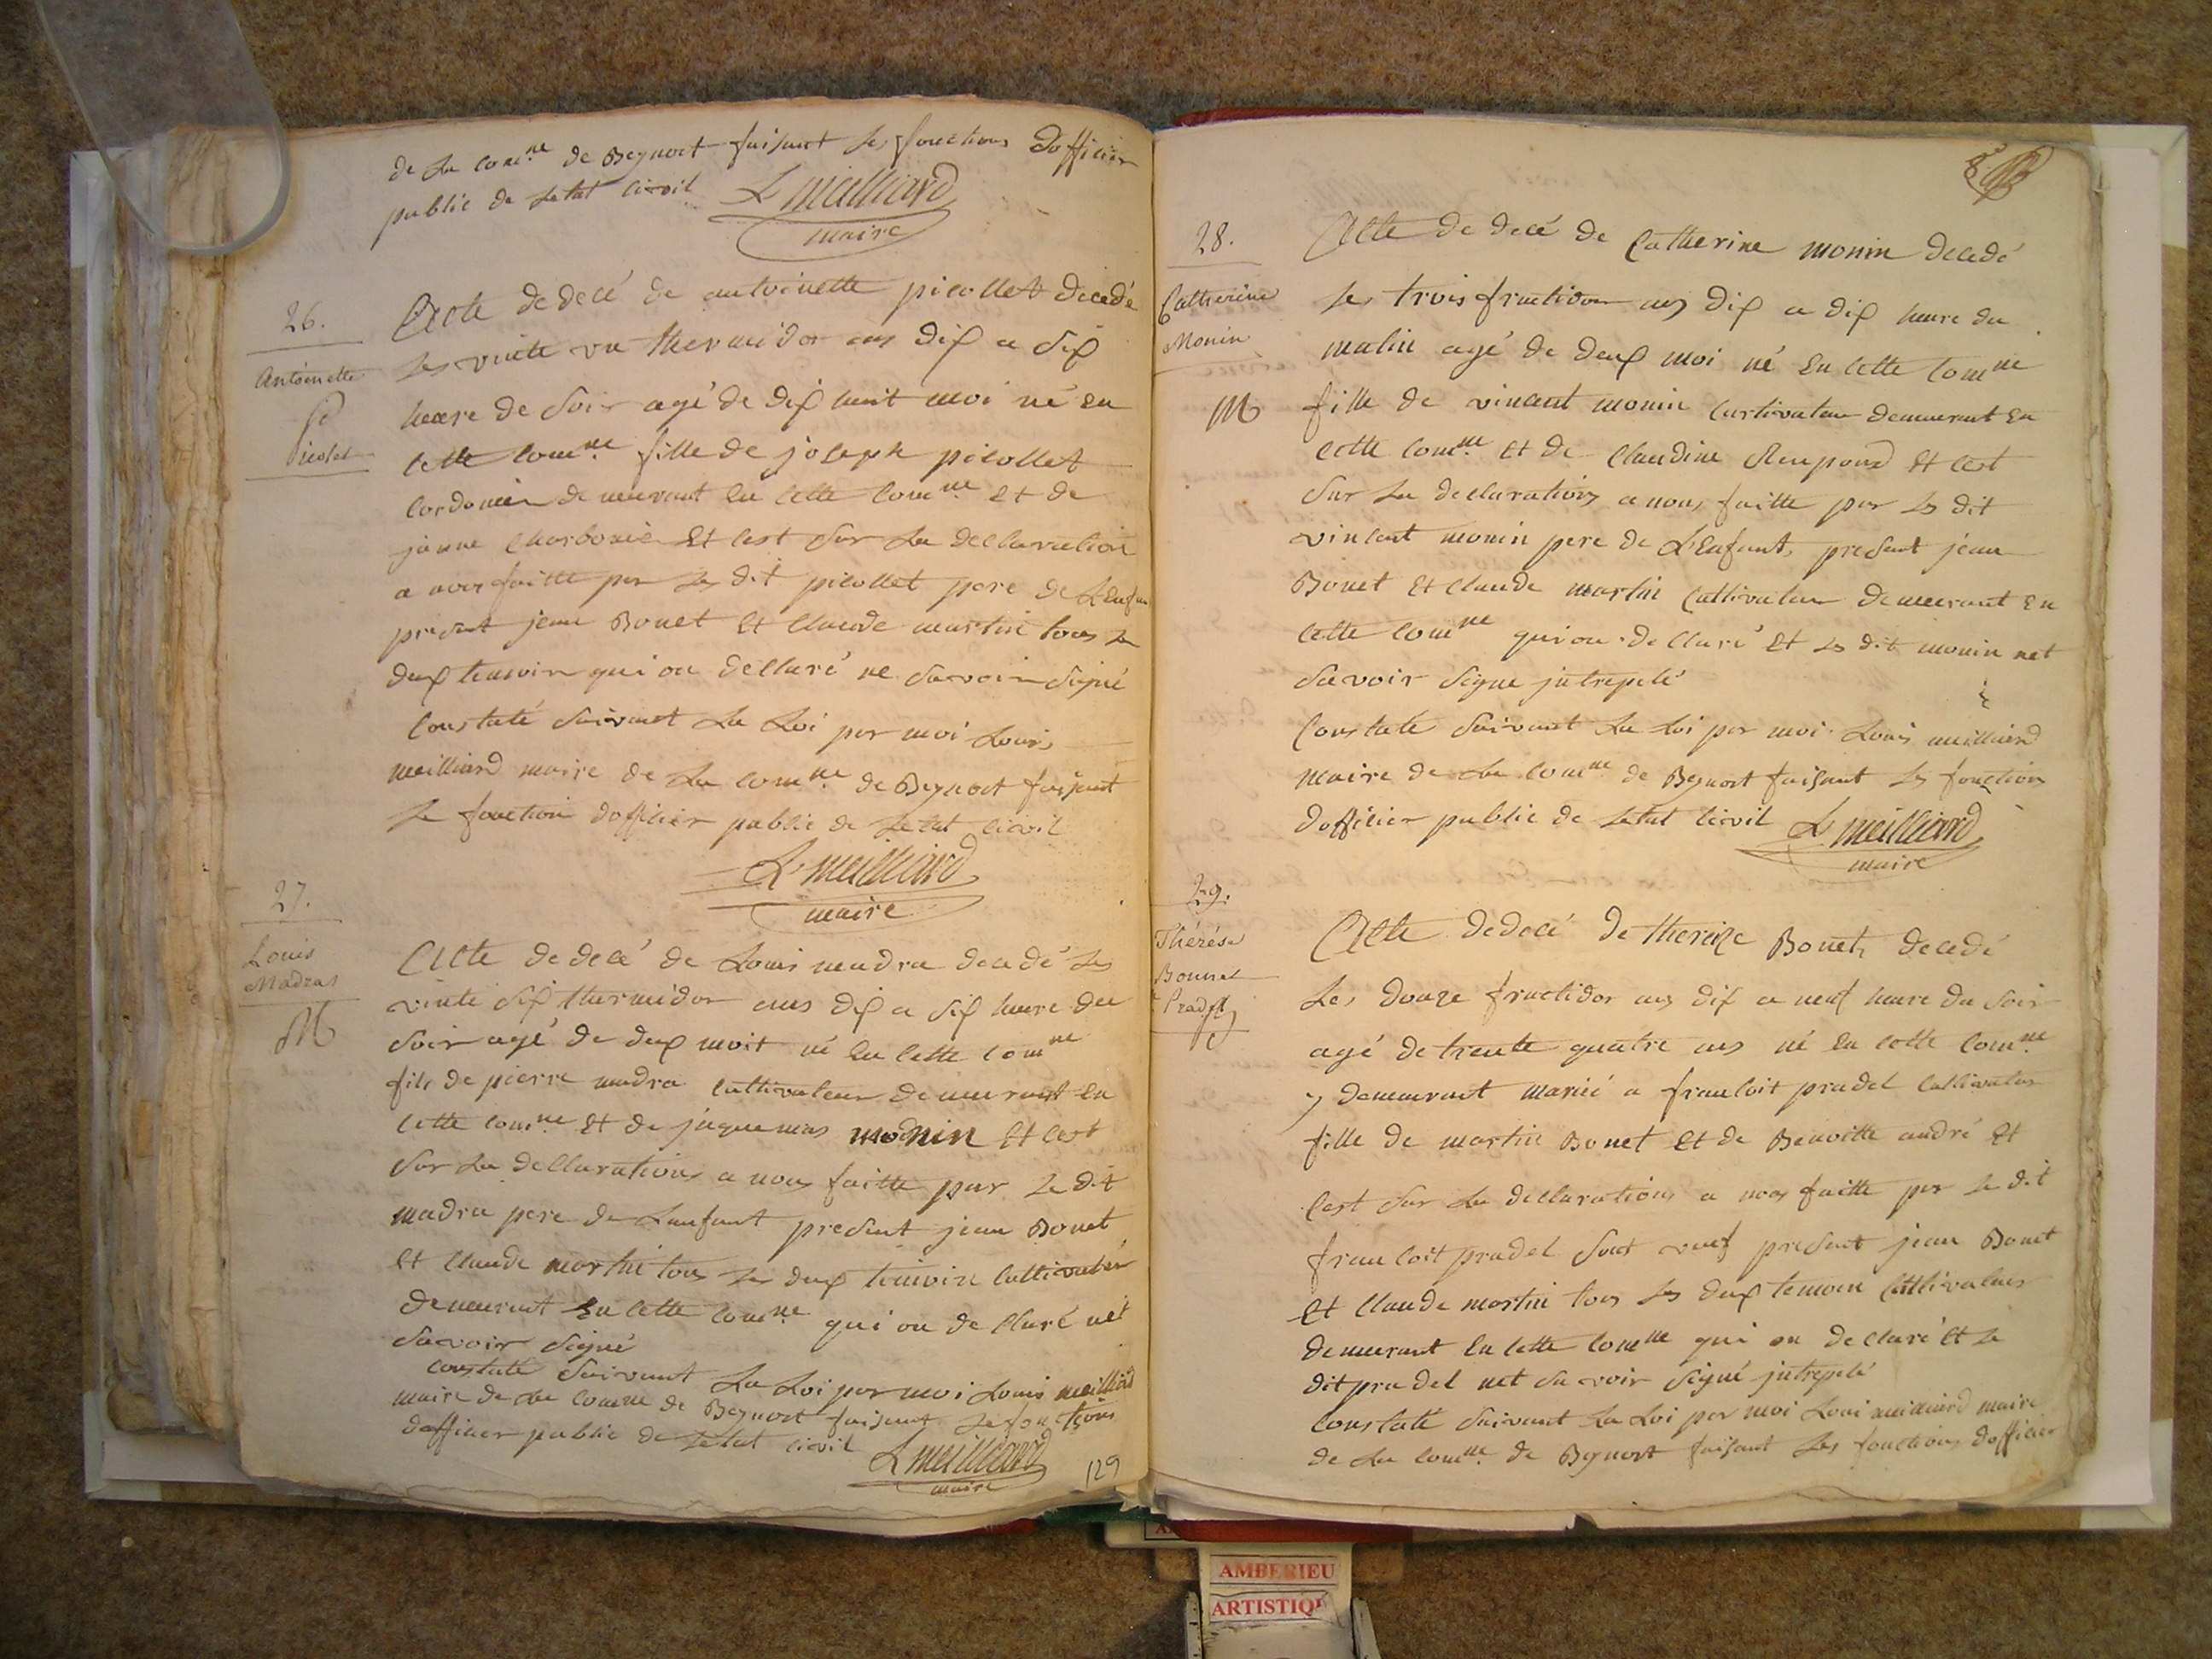 de La com.ne de Beynost faisant les fonctions dofficier
public de Letat civil L meilliard
maire
26.
Antoinette
Picolet
Acte de decé de antoinette picollet decedé
Les vinte un thermidor ans dix a six
heure de soir agé de dix huit moi né en
cette com.ne fille de joseph picollet
Cordonier demeurant en cette com.ne et de
janne Charbonié Et cest sur La declaration
a nous faitte par Les dit picollet pere de L'enfan
present jean Bonet Et Claude martin tous Le
deux temoin qui on declaré ne savoir signé
Constaté suivant La Loi par moi Louis
meilliard maire de La com.ne de Beynost faisant
Le fonction dofficier public de Letat civil
L. meilliard
maire
27.
Louis
Madras
M
Acte de decé de Louis madra decedé Les
vinte six thermidor ans dix a six heure du
soir agé de deux moit né en cette com.ne
fils de pierre madra cultivateur demeurant en
cette com.ne Et de jaquemas monin Et cest
sur La declarations a nous faitte par Le dit
madra pere de Lanfant present jean Bonet
Et Claude martin tous Les deux temoin cultivater
demeurant En cette com.ne qui on declaré net
savoir signé
constaté suivant La Loi par moi Louis meilliard
maire de La comne de Beynost faisant Le fonctions
dofficier public de Letat civil L meilliard
maire
129
8
28.
Catherine
Monin
M
Acte de decé de Catherine monin decedé
Les trois fructidor ans dix a dix heure du
matin agé de deux moi né en cette com.ne
fille de vincent monin cultivateur demeurant en
cette com.ne Et de Claudine Et cest
sur La declarations a nous faitte par Les dit
vincent monin pere de L'Enfant, present jean
Bonet Et Claude martin Cultivateur demeurant en
cette com.ne qui on declaré Et Les dit monin net
savoir signe jntrepelé
Constaté suivant La Loi par moi Louis meilliard
maire de La com.ne de Beynost faisant Les fonctions
dofficier public de Letat civil L. meilliard
maire
29.
Thérése
Bonnet
Acte de decé de thereize Bonet decedé
Les douze fructidor ans dix a neuf heure du soir
agé de trente quatre ans né en cette com.ne
y demeurant marié a francoit pradel cultivateur
fille de martin Bonet Et de Benoitte andré Et
cest sur La declarations a nous faitte par Le dit
francoit pradel sont veuf present jean Bonet
Et Claude martin tous Les deux temoin cultivateur
demeurant en cette com.ne qui on declaré Et Le
dit pradel net savoir signé jntrepelé
Constaté suivant La Loi par moi Loui meilliard maire
de La com.ne de Beynost faisant Les fonctions dofficier
AMBERIEU
ARTISTIQU